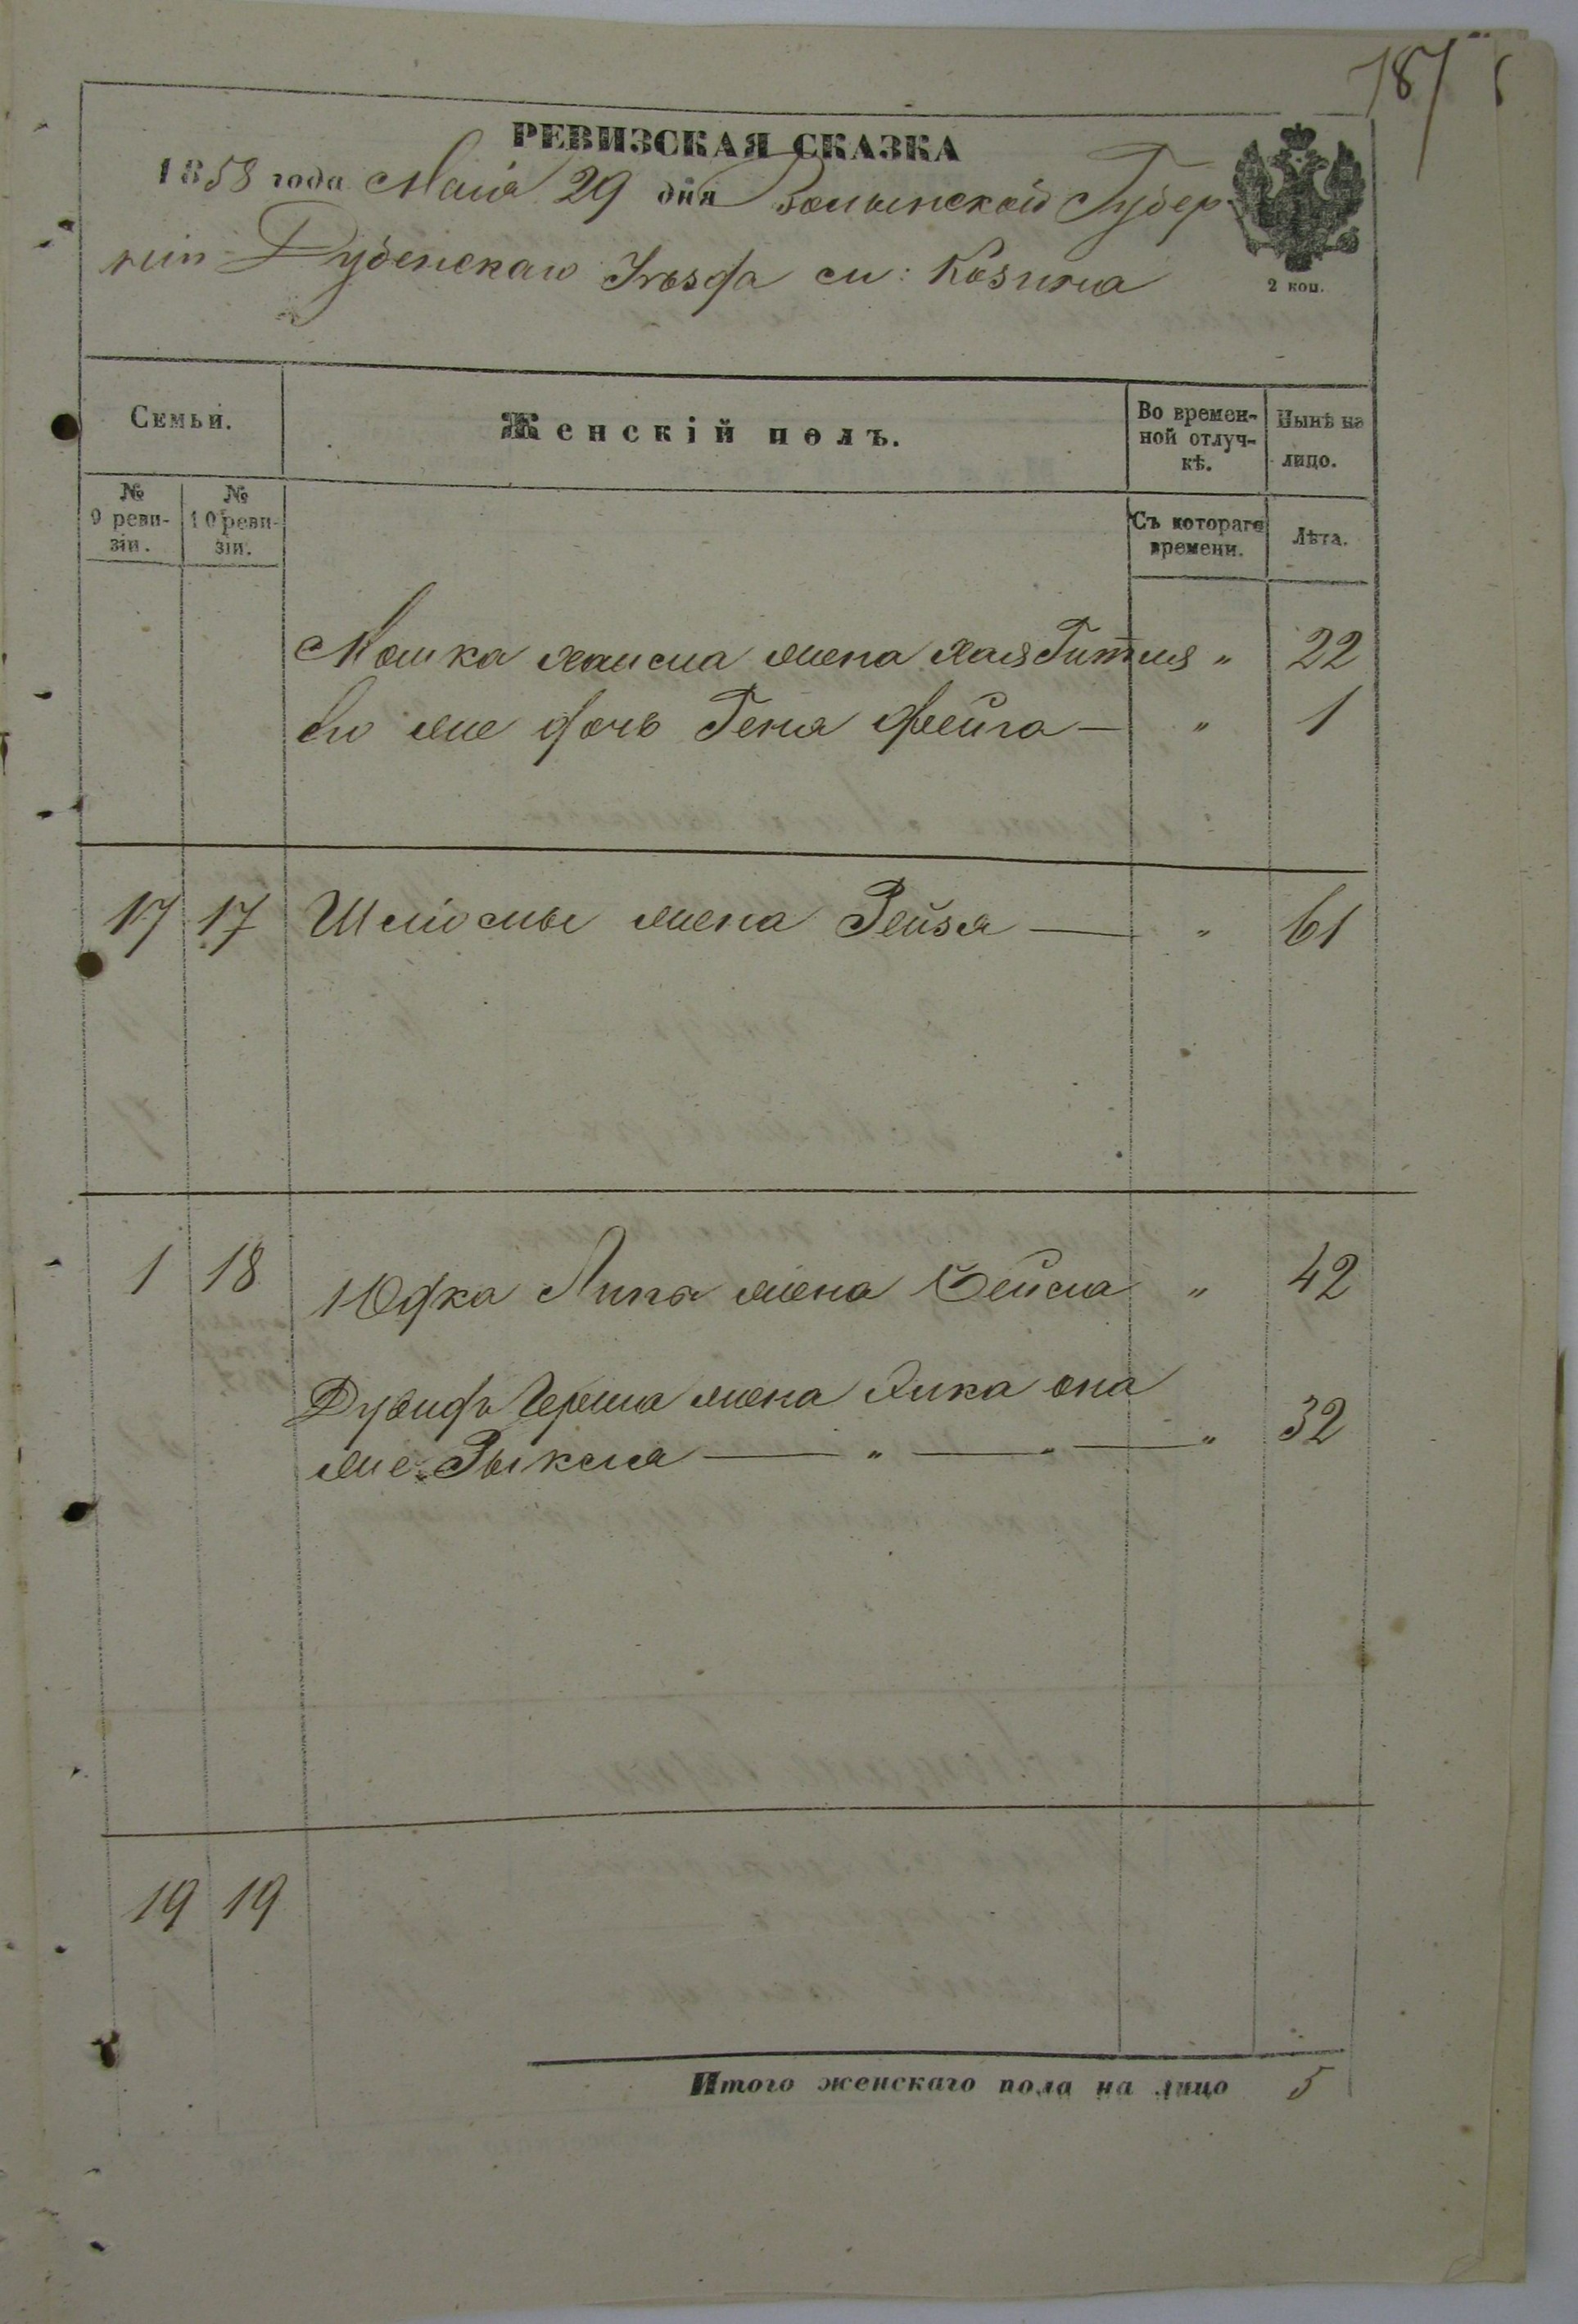 187
РЕВИЗСКАЯ СКАЗКА
1858 года Маія 29 дня Волынской Губер
ніи Дубенскаго Уѣзда м: Козина
2 коп.
Семьи.
Женскій полъ.
Во времен-
ной отлуч-
кѣ.
Нынѣ на
лицо.
№
9 реви-
зіи.
№
10 реви-
зіи.
Съ котораго
времени.
Лѣта.
Мошка Хаима жена Хая Гитля " 22
Его же дочь Геня Фейга — " 1
17 17 Шлiомы жена Рейзя — " 61
1 18 Юдка Липы жена Бейла " 42
Дувидъ Герша жена Хика она
же Рыкля — " — " — " 32
19 19
Итого женскаго пола на лицо 5